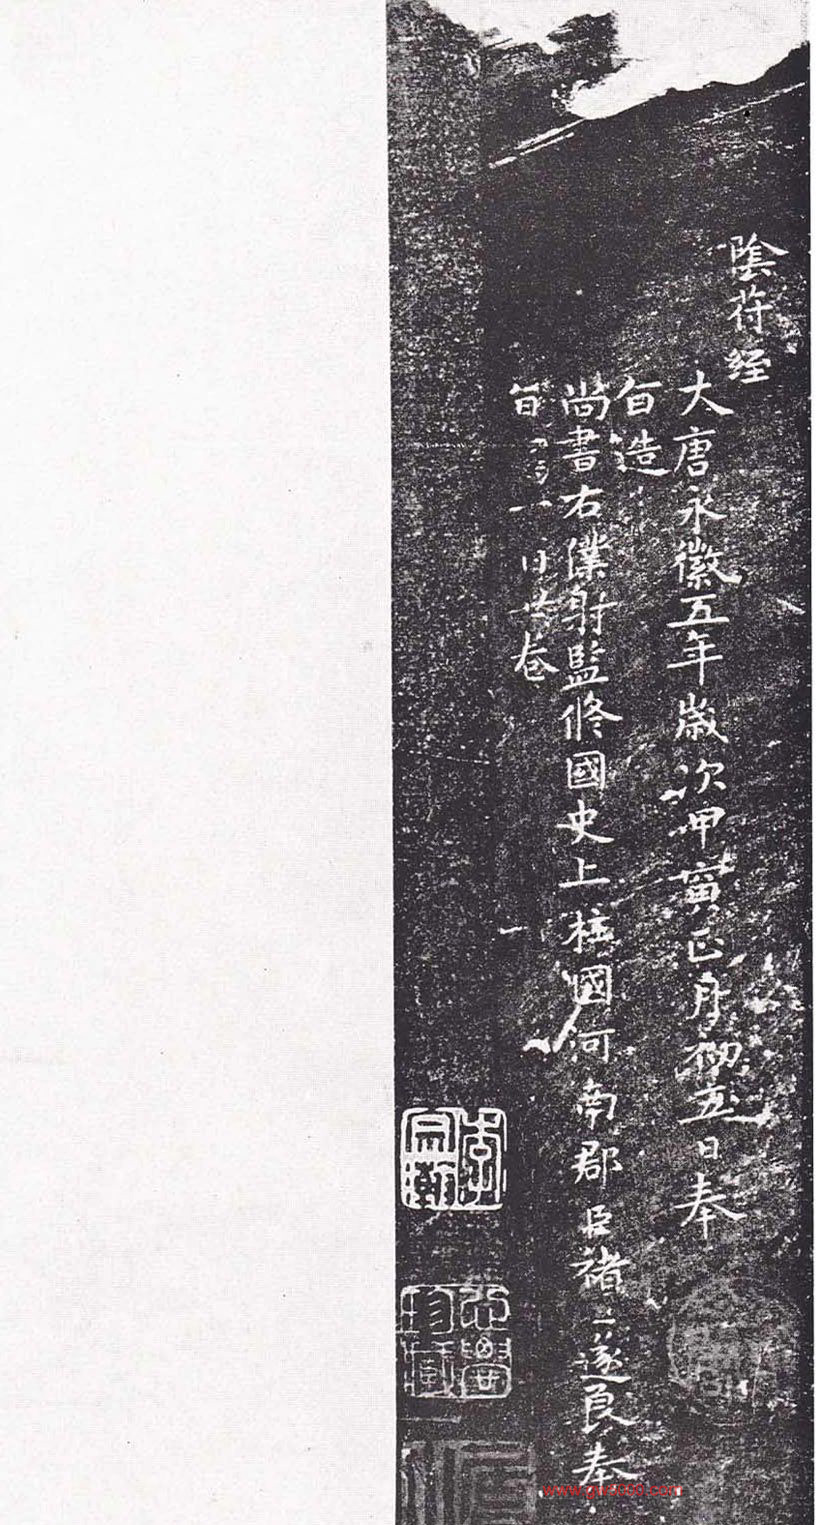 陰苻经
大唐永徽五年歲次甲寅正月初五日奉
旨造
尚書右僕射監修國史上柱國河南郡臣褚遂良奉
旨 一日 卷
www.gw8000.com